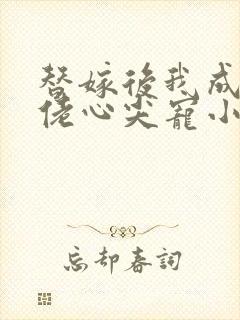 替嫁後我成
佬心尖寵小
忘却春詞